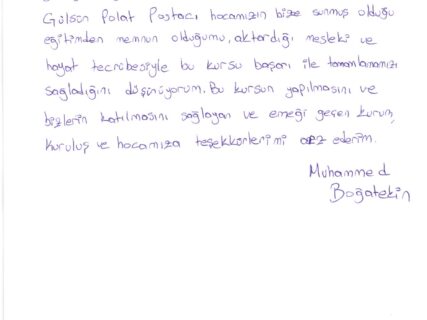 Gülsün Polat Postacı hocamızın bize sunmuş olduğu
eğitimden memnun olduğumu, aktardığı mesleki ve
hayat tecrübesiyle bu kursu başarı ile tamamlamamızı
sağladığını düşünüyorum. Bu kursun yapılmasını ve
bizlerin katılmasını sağlayan ve emeği geçen kurum,
kuruluş ve hocamıza teşekkürlerimi arz ederim.
Muhammed
Boğatekin